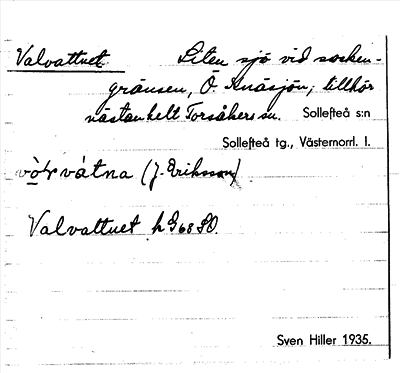 Valvattnet Liten sjö vid socken-
gränsen, Ö. Knäsjön; tillhör
nästan helt Torsåkers sn. Sollefteå s:n
Sollefteå tg., Västernorrl. l.
vátna (J. Eriksson).
Valvattnet
Sven Hiller 1935.